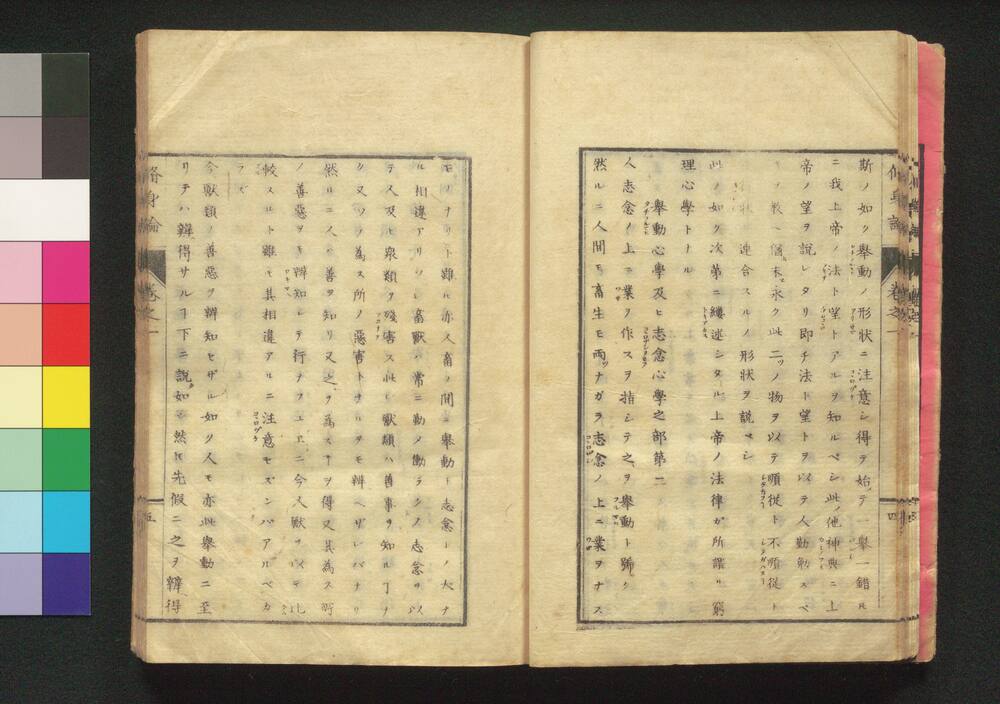 斯ノ如ク舉動ノ形状ニ注意シ得テ始テ一舉一錯ル
ニ我上帝ノ法ト望トアルヲ知ルベシ此ノ他神典ニ上
帝ノ望ヲ說レタリ即チ法ト望トヲ以テ人勤勉スベ
永ク此二ツノ物ヲ以テ順從ト不順從ト
連合スルノ形狀ヲ說ベシ
此ノ如ク次第ニ縷述シタル上帝ノ法律ガ所謂ル窮
理心學トナル
舉動心學及ヒ志念心學之部第二
人志念ノ上ニ業ヲ作スヲ指シテ之ヲ舉動ト號ク
然ルニ人間モ畜生モ兩ツナガラ志念ノ上ニ業ヲナス
修身論
卷之一
四
モノナリト雖ルモ亦人畜ノ間ニ舉動ト志念トノ大ナ
ル相違アリ畜獸ハ常ニ動メ働ラクノ志念ヲ以
テ人及ヒ衆類ヲ殘害ス此ヒ獸類ハ善事ヲ知ル丁ナ
ク又ソノ為ス所ノ惡害トナルヲモ辨ヘザレバナリ
然ルニ人ハ善ヲ知リ又之ヲ為ス丁ヲ得又其為ス所
ノ善惡ヲモ辨知レテ行ナフユエニ今人獸ヲ以テ比
較スルト雖モ其相違アルニ注意セズンバアルベカ
ラズ
今獸類ノ善惡ヲ辨知セザル如ク人モ亦此舉動ニ至
リテハ辨得サル丁下ニ說如シ然モ先假ニ之ヲ辨得
修身論
卷之一
五